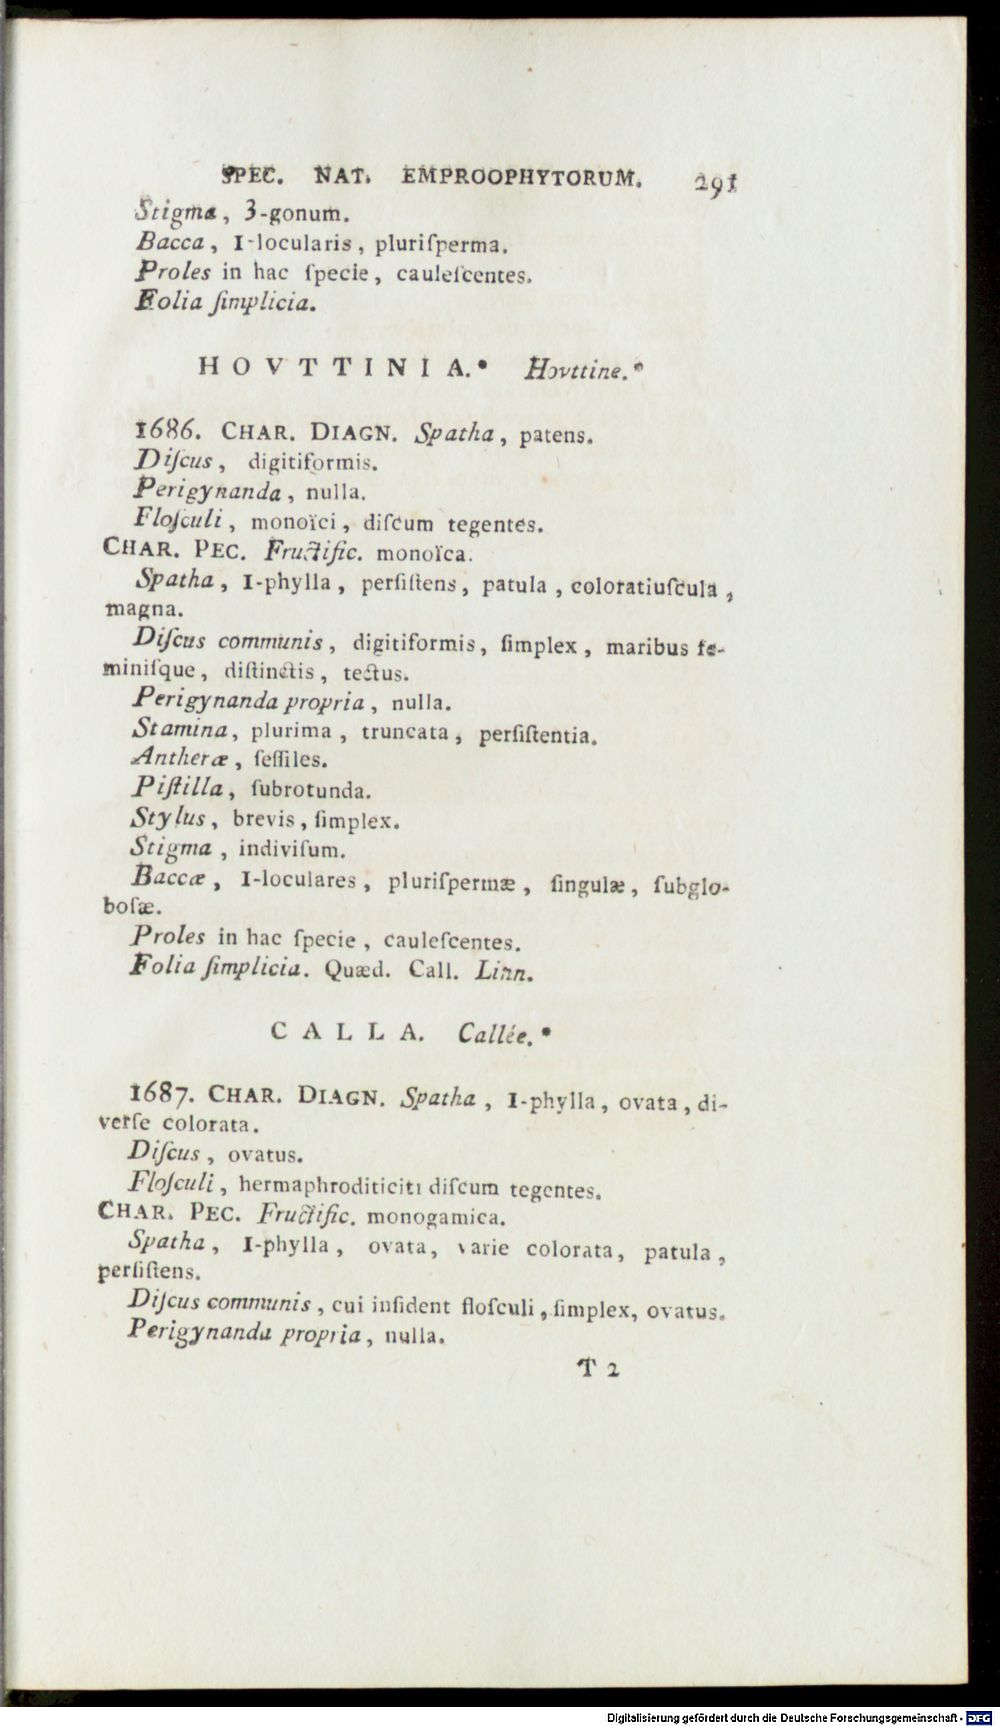 SPEC. NAT. EMPROOPHYTORUM. 291
Stigma, 3-gonum.
Bacca, 1-locularis, pluriſperma.
Proles in hac ſpecie, cauleſcentes.
Folia ſimplicia.
HOVTTINIA.* Hovttine.*
1686. CHAR. DIAGN. Spatha, patens.
Diſcus, digitiformis.
Perigynanda, nulla.
Floſculi, monoïci, diſcum tegentes.
CHAR. PEC. Fructific. monoïca.
Spatha, 1-phylla, perſiſtens, patula, coloratiuſcula,
magna.
Diſcus communis, digitiformis, ſimplex, maribus fe-
miniſque, diſtinctis, tectus.
Perigynanda propria, nulla.
Stamina, plurima, truncata, perſiſtentia.
Antheræ, ſeſſiles.
Piſtilla, ſubrotunda.
Stylus, brevis, ſimplex.
Stigma, indiviſum.
Baccæ, 1-loculares, pluriſpermæ, ſingulæ, ſubglo-
boſæ.
Proles in hac ſpecie, cauleſcentes.
Folia ſimplicia. Quæd. Call. Linn.
CALLA. Callée.*
1687. CHAR. DIAGN. Spatha, 1-phylla, ovata, di-
verſe colorata.
Diſcus, ovatus.
Floſculi, hermaphroditiciti diſcum tegentes.
CHAR. PEC. Fructific. monogamica.
Spatha, 1-phylla, ovata, varie colorata, patula,
perſiſtens.
Diſcus communis, cui inſident floſculi, ſimplex, ovatus.
Perigynanda propria, nulla.
T 2
Digitalisierung gefördert durch die Deutsche Forschungsgemeinschaft - DFG